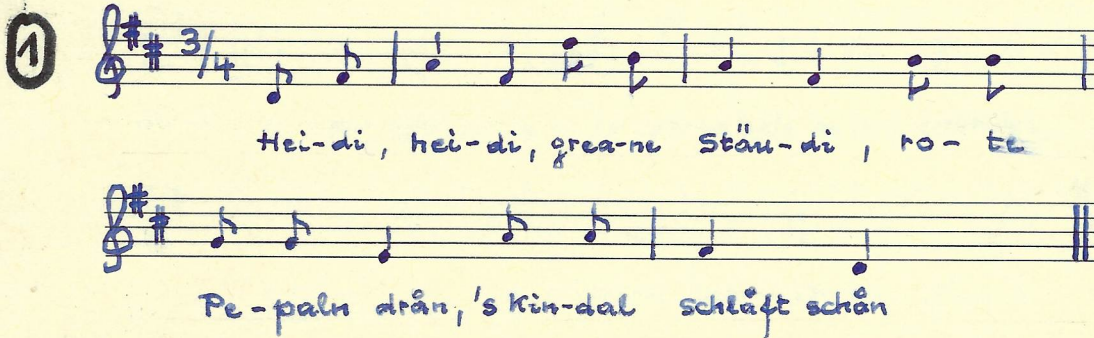 1
3/4
Hei-di, hei-di, grea-ne Stäu-di, ro-te
Pe-paln drån, 's Kin-dal schlåft schån